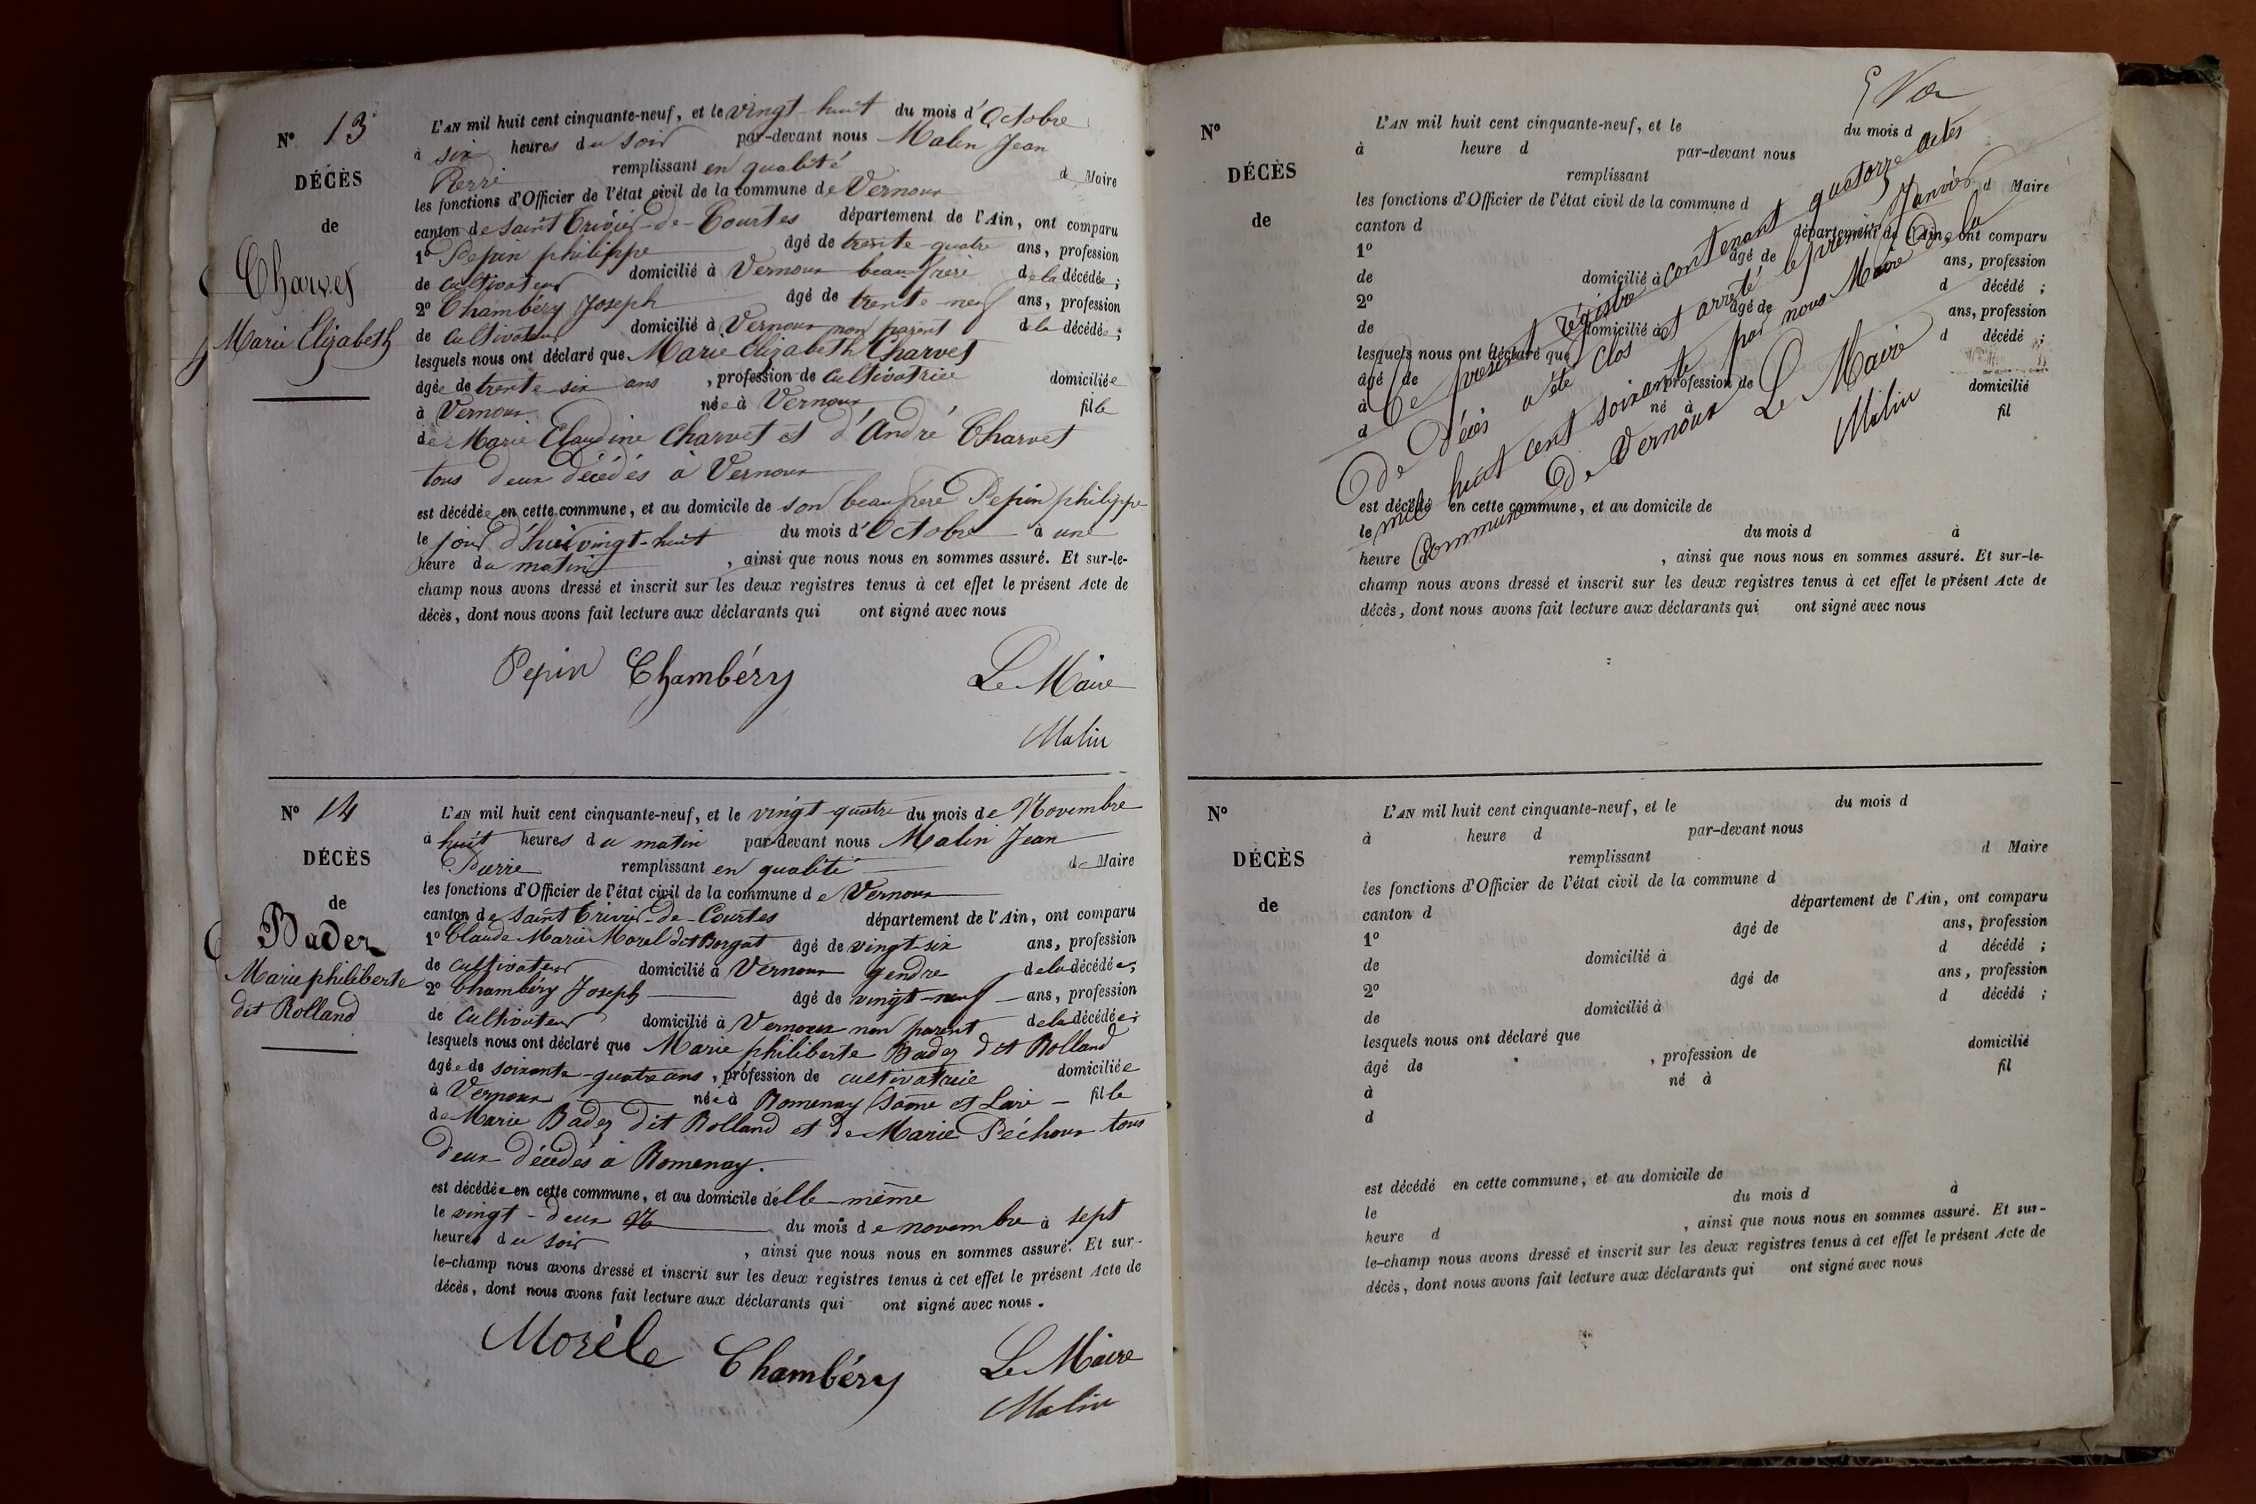 N° 13
DÉCÈS
de
Charvet
Marie Elizabeth
L'AN mil huit cent cinquante-neuf, et le vingt-huit du mois d'Octobre
à six heures du soir par-devant nous Malin Jean
Pierre remplissant en qualité de Maire
les fonctions d'Officier de l'état civil de la commune de Vernoux
canton de Saint Trivier-de-Courtes département de l'Ain, ont comparu
1° Pepin philippe âgé de trente-quatre ans, profession
de cultivateur domicilié à Vernoux beaufrere de la décédée ;
2° Chambéry Joseph âgé de trente-neuf ans, profession
de cultivateur domicilié à Vernoux non parent de la décédée ;
lesquels nous ont déclaré que Marie Elizabeth Charvet
âgée de trente six ans , profession de cultivatrice domiciliée
à Vernoux née à Vernoux fille
de Marie Claudine Charvet et d'André Charvet
tous deux décédés à Vernoux
est décédée en cette commune, et au domicile de son beaufrere Pepin philippe
le jour d'hui vingt-huit du mois d'Octobre à une
heure du matin , ainsi que nous nous en sommes assuré. Et sur-le-
champ nous avons dressé et inscrit sur les deux registres tenus à cet effet le présent Acte de
décès, dont nous avons fait lecture aux déclarants qui ont signé avec nous
Pepin Chambéry Le Maire
Malin
N° 14
DÉCÈS
de
Badez
Marie philiberte
dit Rolland
L'AN mil huit cent cinquante-neuf, et le vingt-quatre du mois de Novembre
à huit heures du matin par-devant nous Malin Jean
Pierre remplissant en qualité de Maire
les fonctions d'Officier de l'état civil de la commune de Vernoux
canton de Saint Trivier-de-Courtes département de l'Ain, ont comparu
1° Claude Marie Morel dit Borgat âgé de vingt-six ans, profession
de cultivateur domicilié à Vernoux gendre de la décédée ;
2° Chambéry Joseph âgé de vingt-neuf ans, profession
de cultivateur domicilié à Vernoux non parent de la décédée ;
lesquels nous ont déclaré que Marie philiberte Badez dit Rolland
âgée de soixante-quatre ans , profession de cultivatrice domiciliée
à Vernoux née à Romenay Saône et Loire fille
de Marie Badez dit Rolland et de Marie Péchoux tous
deux décédés à Romenay.
est décédée en cette commune, et au domicile d'elle-même
le vingt-deux du mois de novembre à sept
heures du soir , ainsi que nous nous en sommes assuré. Et sur-
le-champ nous avons dressé et inscrit sur les deux registres tenus à cet effet le présent Acte de
décès, dont nous avons fait lecture aux déclarants qui ont signé avec nous.
Morèle Chambéry Le Maire
Malin
N°
DÉCÈS
de
L'AN mil huit cent cinquante-neuf, et le du mois d
à heure d par-devant nous
remplissant d Maire
les fonctions d'Officier de l'état civil de la commune d
canton d département de l'Ain, ont comparu
1° âgé de ans, profession
de domicilié à d décédé ;
2° âgé de ans, profession
de domicilié à d décédé ;
lesquels nous ont déclaré que
âgé de , profession de domicilié
à né à fil
d
est décédé en cette commune, et au domicile de
le du mois d à
heure d , ainsi que nous nous en sommes assuré. Et sur-le-
champ nous avons dressé et inscrit sur les deux registres tenus à cet effet le présent Acte de
décès, dont nous avons fait lecture aux déclarants qui ont signé avec nous
Le présent régistre contenant quatorze actes
de Décès a été clos et arrêté le premier Janvier
mil huit cent soixante par nous Maire de la
Commune de Vernoux Le Maire
Malin
N°
DÉCÈS
de
L'AN mil huit cent cinquante-neuf, et le du mois d
à heure d par-devant nous
remplissant d Maire
les fonctions d'Officier de l'état civil de la commune d
canton d département de l'Ain, ont comparu
1° âgé de ans, profession
de domicilié à d décédé ;
2° âgé de ans, profession
de domicilié à d décédé ;
lesquels nous ont déclaré que
âgé de , profession de domicilié
à né à fil
d
est décédé en cette commune, et au domicile de
le du mois d à
heure d , ainsi que nous nous en sommes assuré. Et sur-
le-champ nous avons dressé et inscrit sur les deux registres tenus à cet effet le présent Acte de
décès, dont nous avons fait lecture aux déclarants qui ont signé avec nous